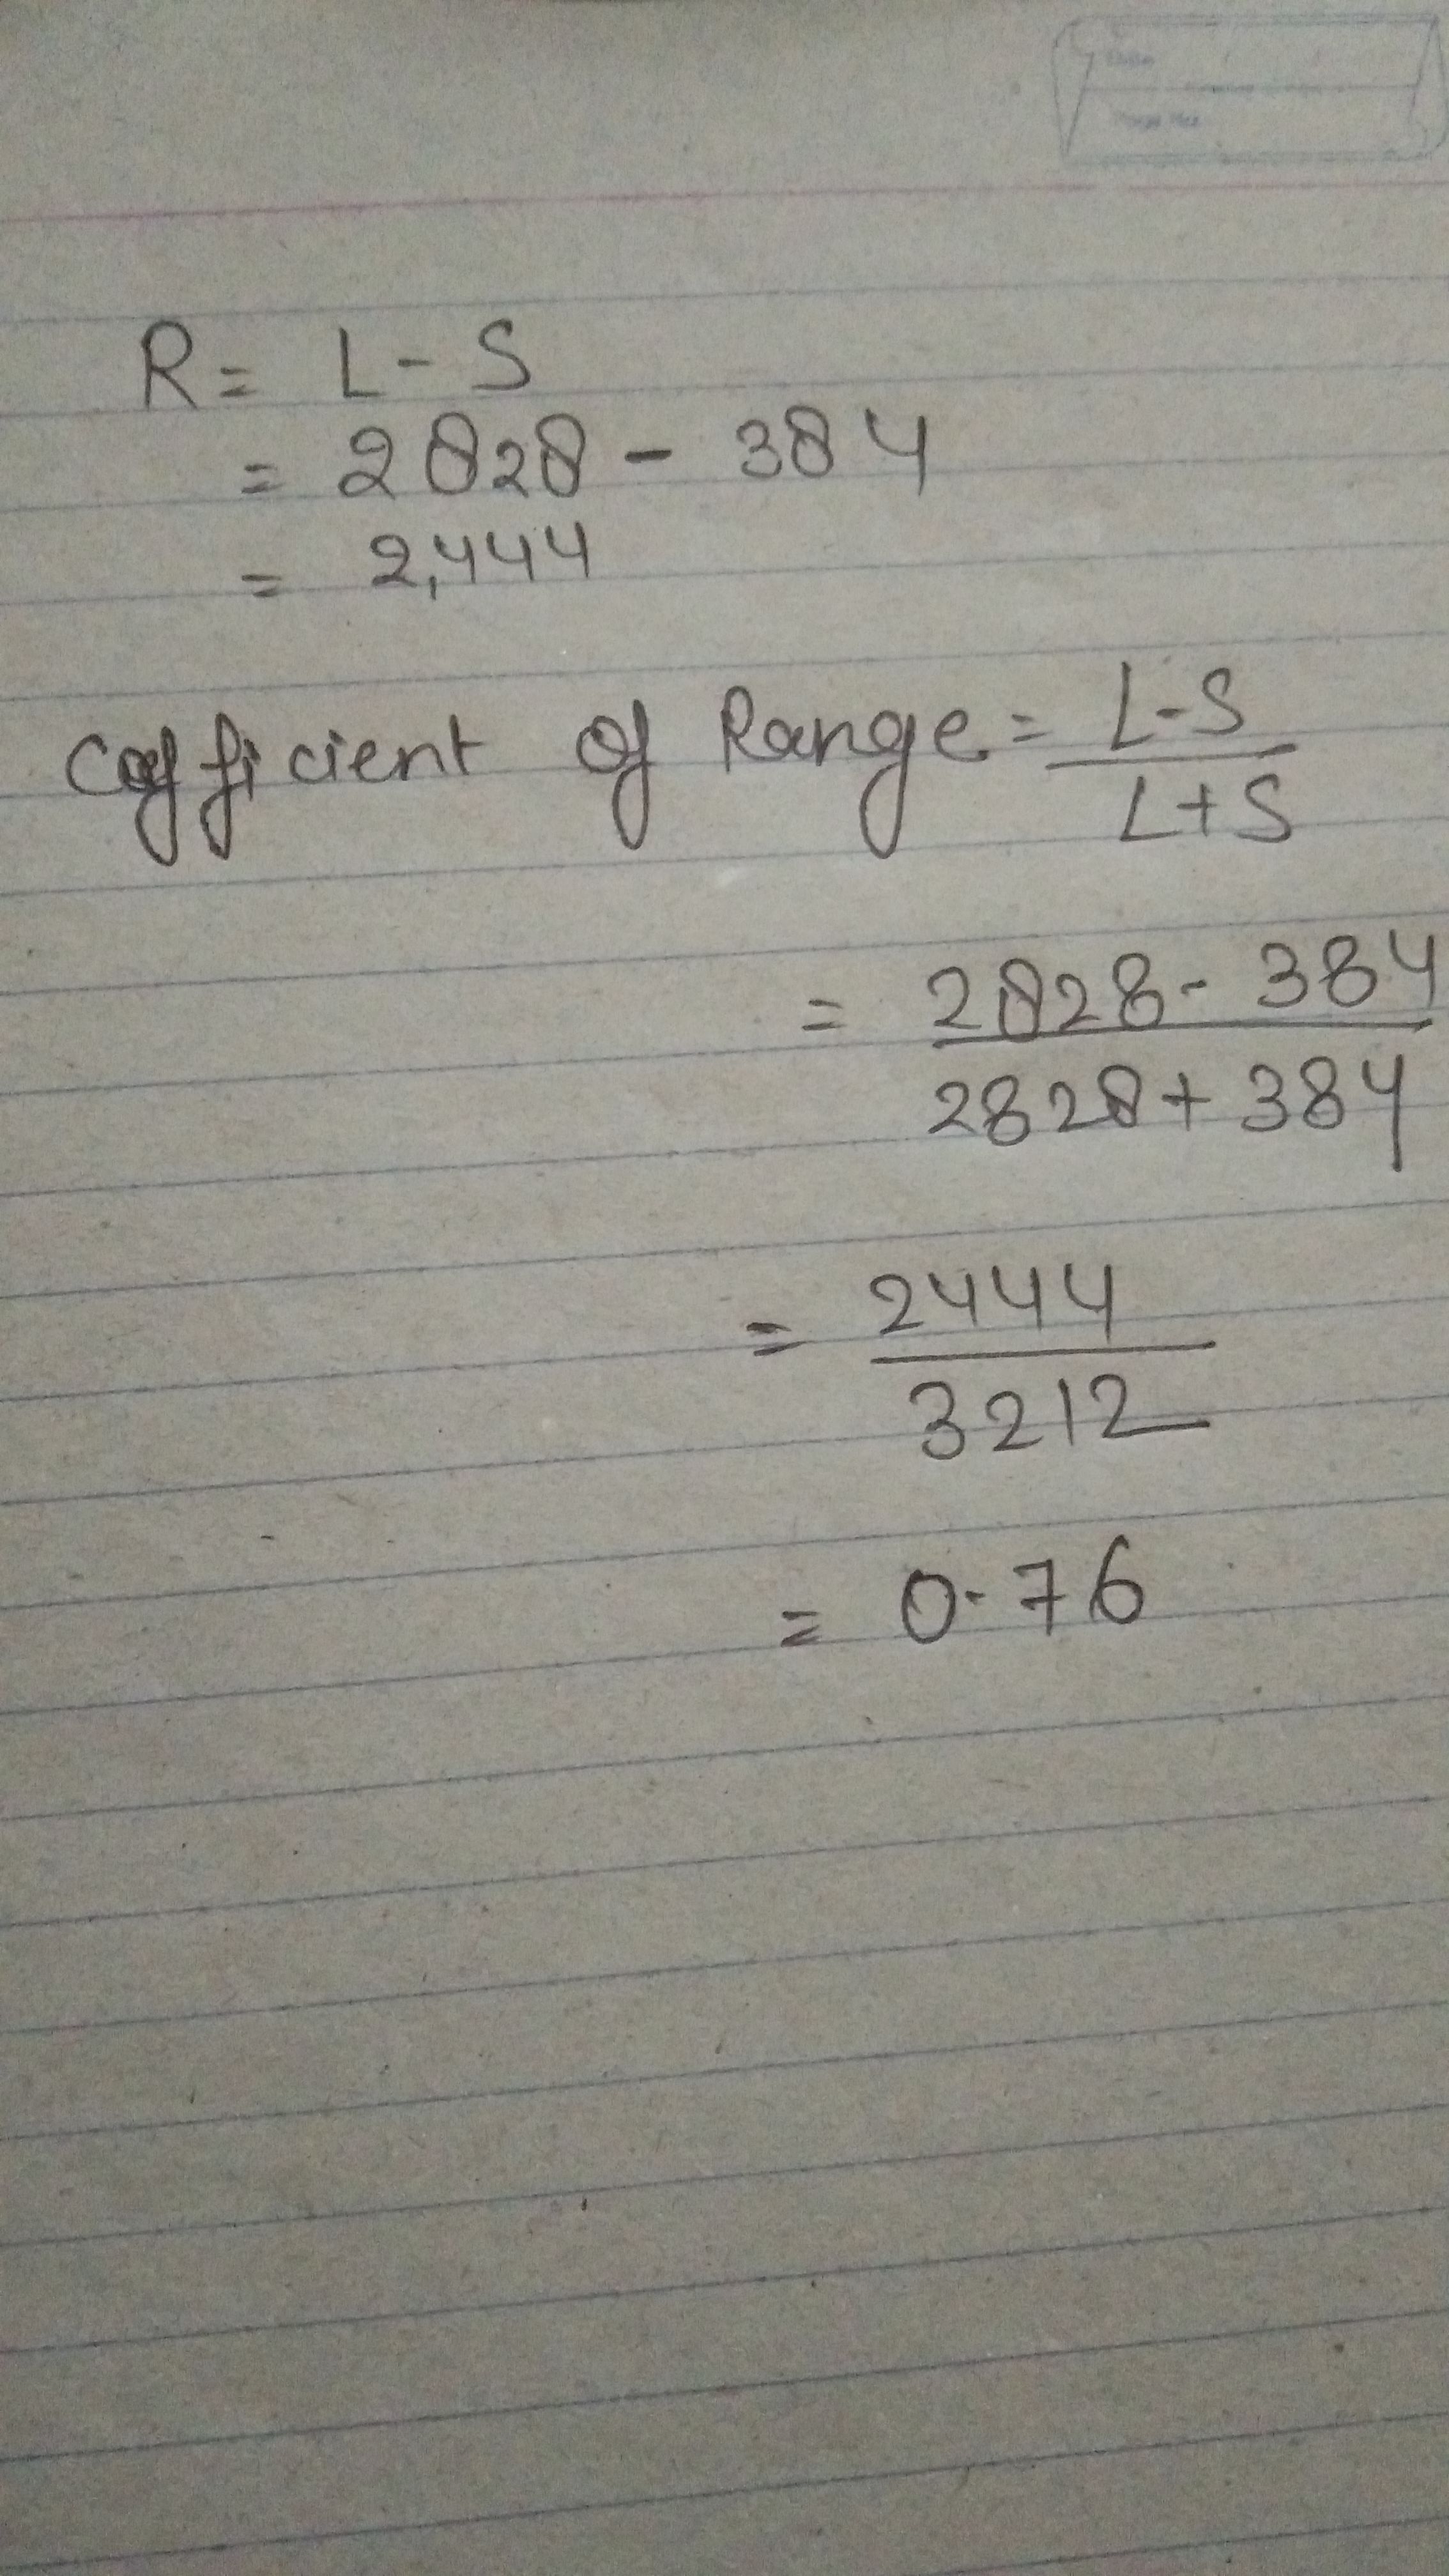 Date
Page No.
R = L - S
= 2828 - 384
= 2,444
Cofficient of Range = L-S
L+S
= 2828 - 384
2828 + 384
= 2444
3212
= 0.76